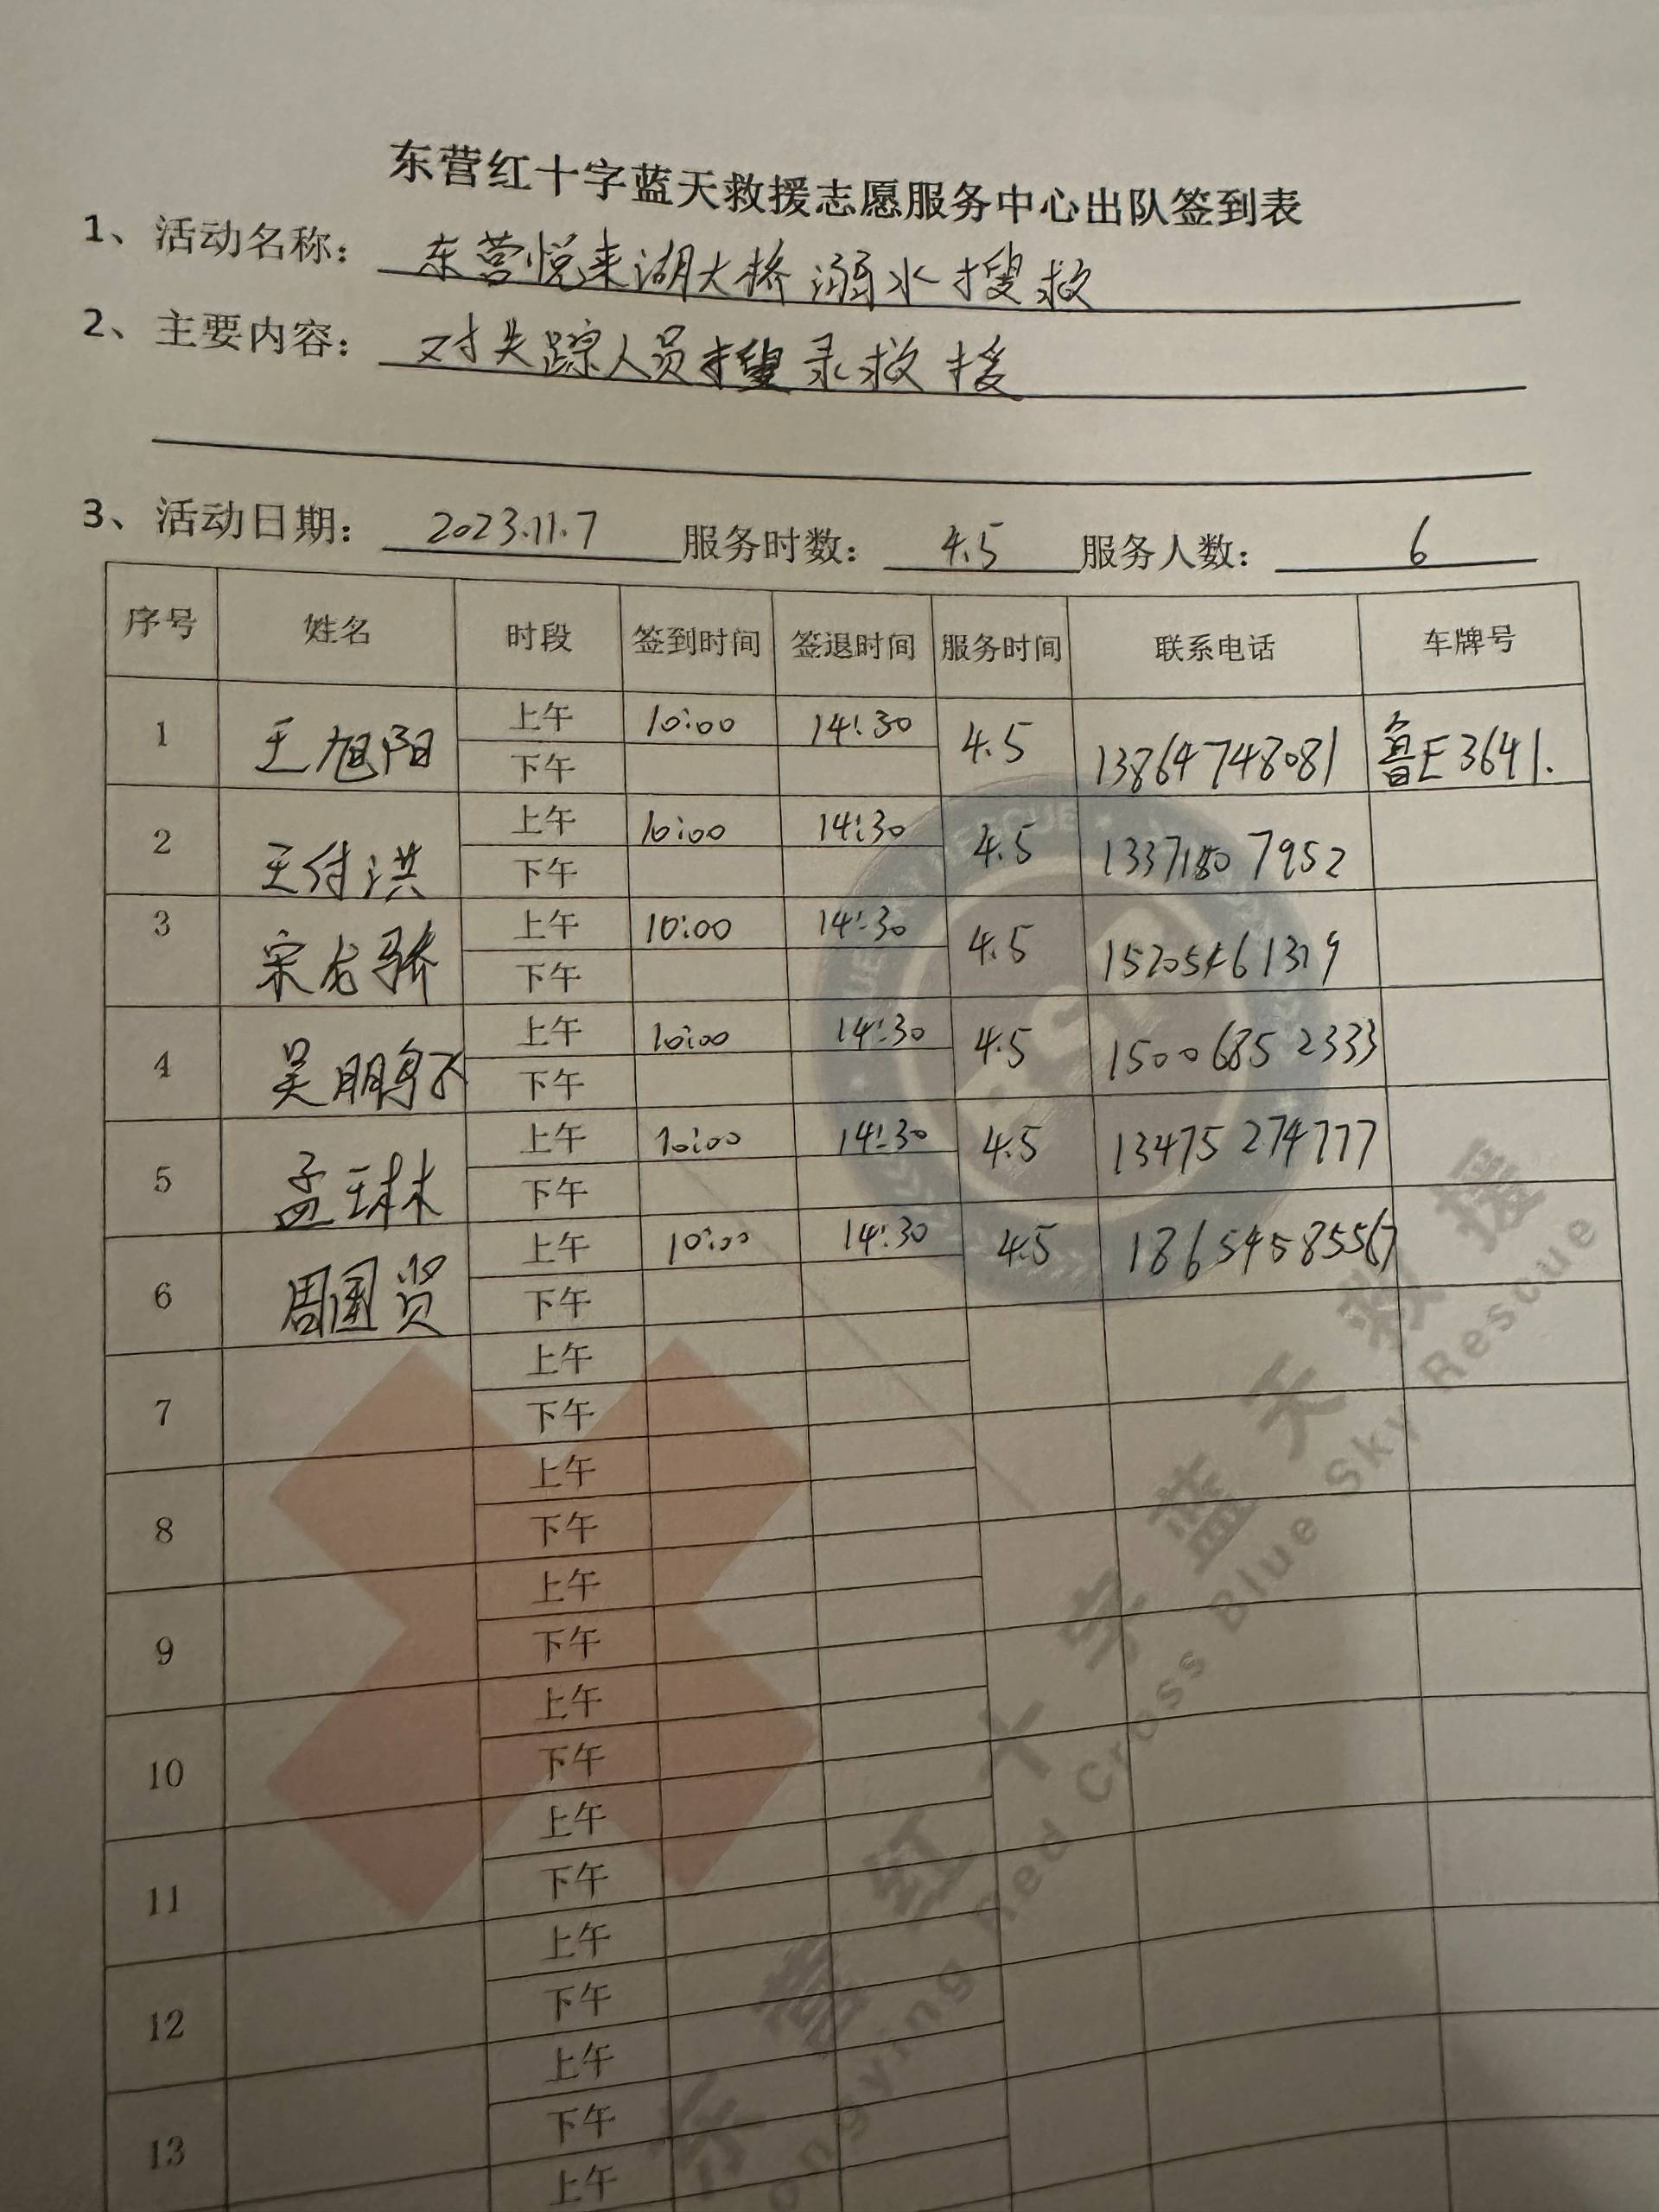 东营红十字蓝天救援志愿服务中心出队签到表
1、活动名称: 东营悦来湖大桥溺水搜救
2、主要内容: 对失踪人员搜录救援
3、活动日期: 2023.11.7 服务时数: 4.5 服务人数: 6
序号 姓名 时段 签到时间 签退时间 服务时间 联系电话 车牌号
1 王旭阳 上午 10:00 14:30 4.5 13864748081 鲁E3641.
下午
2 王付洪 上午 10:00 14:30 4.5 7952
下午
3 宋龙骄 上午 10:00 14:30 4.5
下午
4 吴鹏 上午 10:00 14:30 4.5 15006852333
下午
5 孟玉林 上午 10:00 14:30 4.5 13475274777
下午
6 周国贤 上午 10:00 14:30 4.5
下午
7 上午
下午
8 上午
下午
9 上午
下午
10 上午
下午
11 上午
下午
12 上午
下午
13 上午
下午
上午
东营红十字蓝天救援
ongying Red Cross Blue Sky Rescue